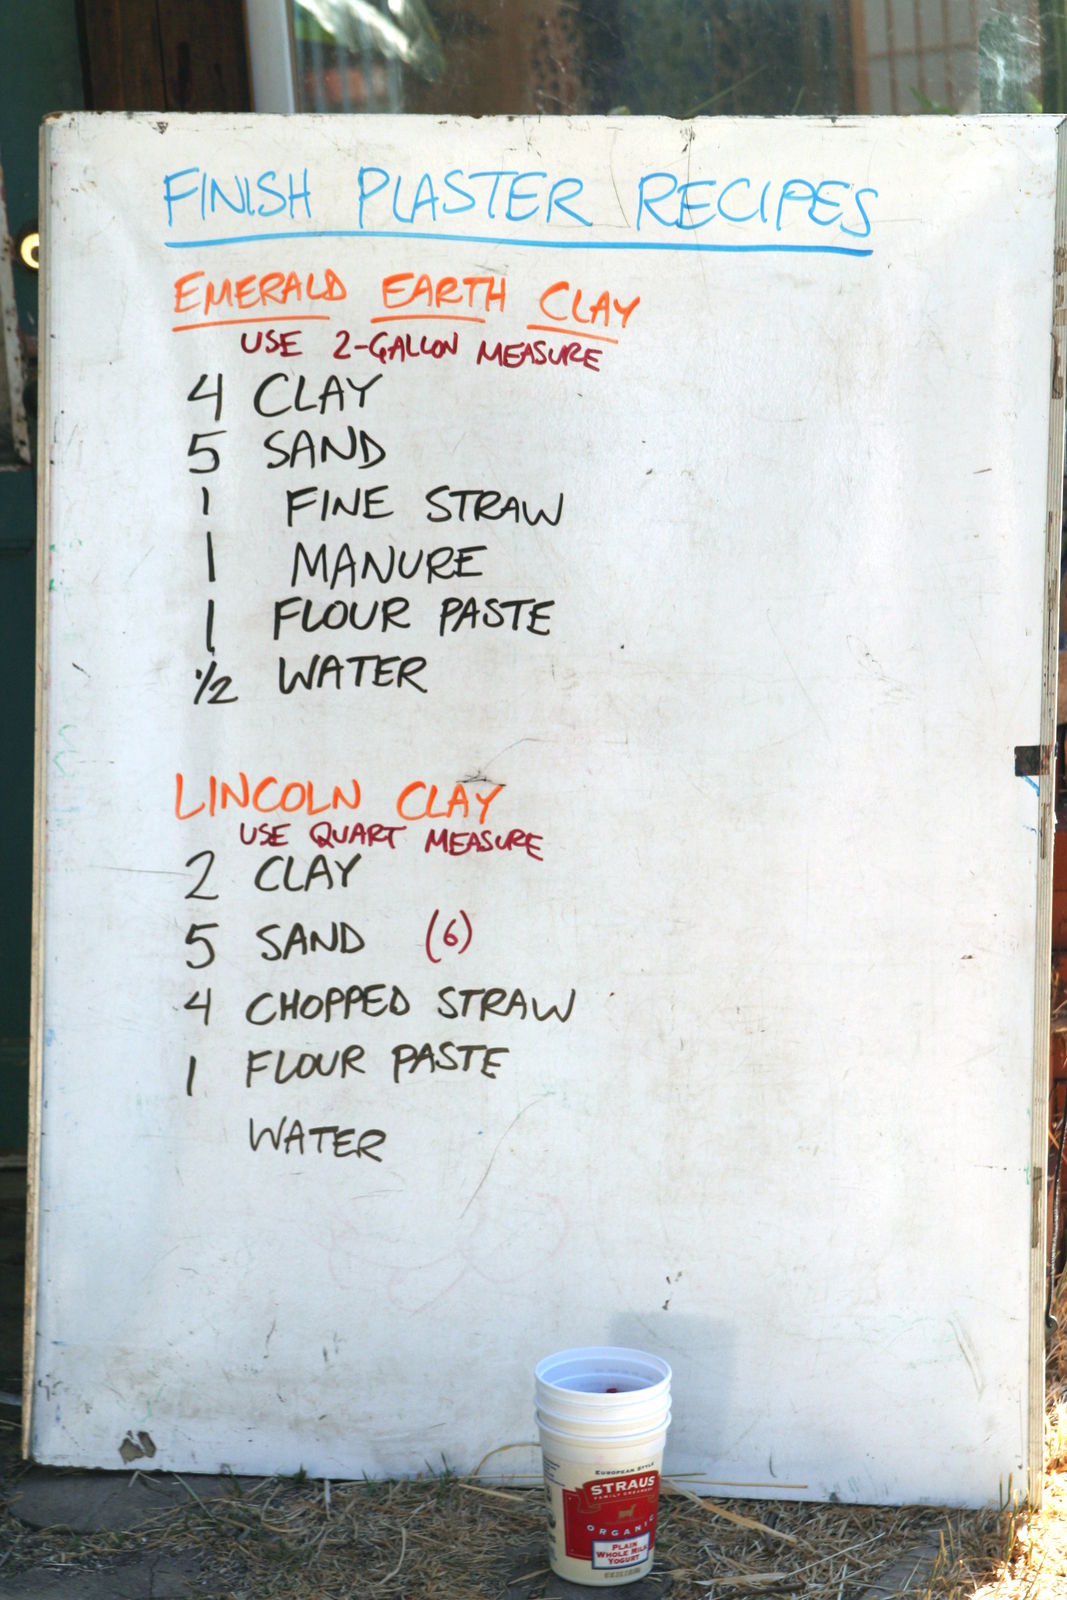 FINISH PLASTER RECIPES
EMERALD EARTH CLAY
USE 2-GALLON MEASURE
4 CLAY
5 SAND
1 FINE STRAW
1 MANURE
1 FLOUR PASTE
1/2 WATER
LINCOLN CLAY
USE QUART MEASURE
2 CLAY
5 SAND (6)
4 CHOPPED STRAW
1 FLOUR PASTE
WATER
EUROPEAN STYLE
STRAUS
FAMILY CREAMERY
ORGANIC
PLAIN
WHOLE MILK
YOGURT